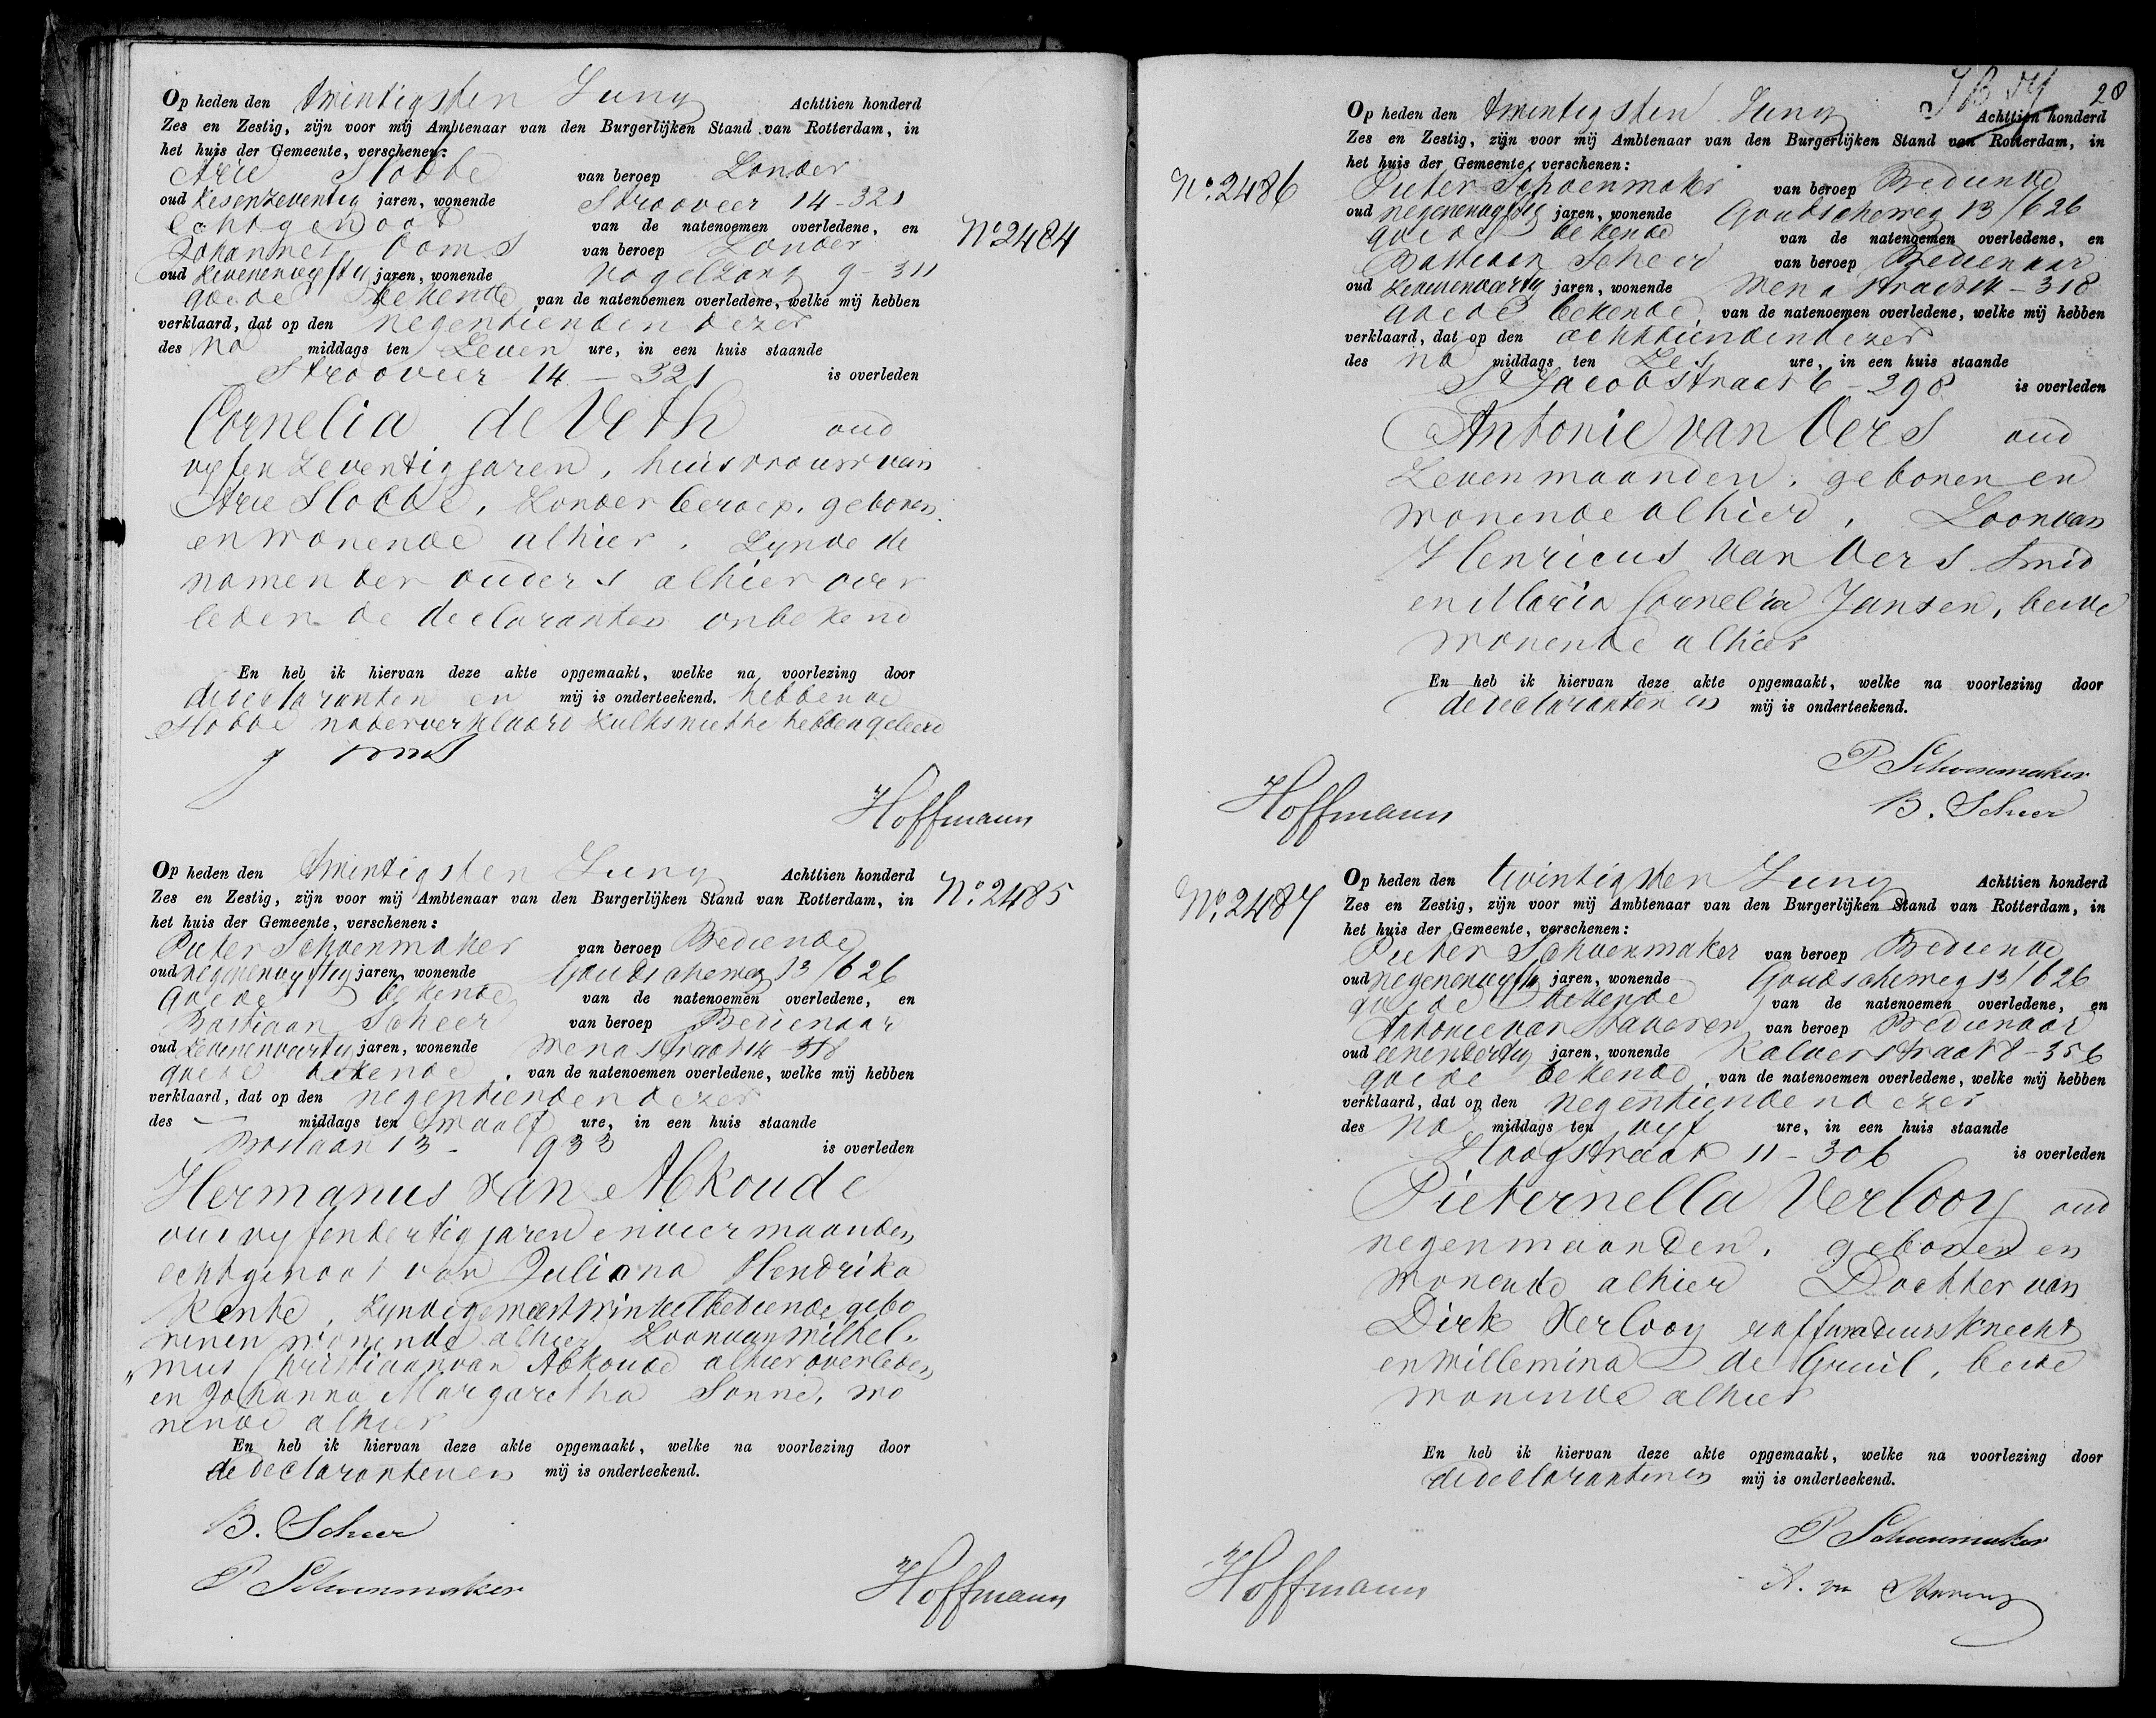 Op heden den twintigsten Juny Achttien honderd
Zes en Zestig, zijn voor mij Ambtenaar van den Burgerlijken Stand van Rotterdam, in
het huis der Gemeente, verschenen:
Arie Slobbe van beroep Zonder
oud Zesenzeventig jaren, wonende Strooveer 14-321
echtgenoot van de natenoemen overledene, en
Johannes Ooms van beroep Zonder
oud Zevenenvyftig jaren, wonende Vogelzang 9-311
goede bekende, van de natenoemen overledene, welke mij hebben
verklaard, dat op den negentienden dezer
des Na middags ten Zeven ure, in een huis staande
Strooveer 14-321 is overleden
Cornelia de Veth oud
vyfenzeventig jaren, huisvrouw van
Arie Slobbe, Zonder beroep, geboren
en wonende alhier. Zynde de
namen der ouders alhier over
leden de declaranten onbekend
En heb ik hiervan deze akte opgemaakt, welke na voorlezing door
de declaranten en mij is onderteekend. hebbende
Slobbe nader verklaard zulks niet te hebben geleerd
J ooms
Hoffmann
No 2484
Op heden den twintigsten Juny Achttien honderd
Zes en Zestig, zijn voor mij Ambtenaar van den Burgerlijken Stand van Rotterdam, in
het huis der Gemeente, verschenen:
Pieter Schoenmaker van beroep Bediende
oud negenenvyftig jaren, wonende Goudscheweg 13/626
goede bekende van de natenoemen overledene, en
Bastiaan Scheer van beroep Bedienaar
oud Zevenenveertig jaren, wonende Wenastraat 14-318
goede bekende, van de natenoemen overledene, welke mij hebben
verklaard, dat op den negentienden dezer
des - middags ten twaalf ure, in een huis staande
Boslaan 13 - 933 is overleden
Hermanus van Abkoude
oud vyfendertig jaren en vier maanden
echtgenoot van Juliana Hendrika
Kente, Zynde geweest winkelbediende, gebo
ren en wonende alhier Zoon van Wilhel-
"mus Christiaan van Abkoude alhier overleden
en Johanna Margaretha Sonne, wo
nende alhier
En heb ik hiervan deze akte opgemaakt, welke na voorlezing door
de declaranten en mij is onderteekend.
B. Scheer
P Schoenmaker
Hoffmann
No. 2485
28
Op heden den twintigsten Juny Achttien honderd
Zes en Zestig, zijn voor mij Ambtenaar van den Burgerlijken Stand van Rotterdam, in
het huis der Gemeente, verschenen:
Pieter Schoenmaker van beroep Bediende
oud negenenvyftig jaren, wonende Goudscheweg 13/626
goede bekende van de natenoemen overledene, en
Bastiaan Scheer van beroep Bedienaar
oud Zevenenveertig jaren, wonende Wenastraat 14-318
goede bekende, van de natenoemen overledene, welke mij hebben
verklaard, dat op den achttienden dezer
des na middags ten Zes ure, in een huis staande
St Jacobstraat 6-298 is overleden
Antonie van Oers oud
Zeven maanden, geboren en
wonende alhier, Zoon van
Henricus van Oers Smid
en Maria Cornelia Jansen, beide
wonende alhier
En heb ik hiervan deze akte opgemaakt, welke na voorlezing door
de declaranten en mij is onderteekend.
P Schoenmaker
B. Scheer
Hoffmann
No. 2486
Op heden den twintigsten Juny Achttien honderd
Zes en Zestig, zijn voor mij Ambtenaar van den Burgerlijken Stand van Rotterdam, in
het huis der Gemeente, verschenen:
Pieter Schoenmaker van beroep Bediende
oud negenenvyftig jaren, wonende Goudscheweg 13/626
goede bekende van de natenoemen overledene, en
Antonie van Staveren van beroep Bedienaar
oud eenendertig jaren, wonende Kalverstraat 8-356
goede bekende, van de natenoemen overledene, welke mij hebben
verklaard, dat op den negentienden dezer
des Na middags ten vyf ure, in een huis staande
Hoogstraat 11-306 is overleden
Pieternella Verlooy oud
negen maanden, geboren en
wonende alhier Dochter van
Dirk Verlooy raffinadeursknecht
en Willemina de Gruil, beide
wonende alhier
En heb ik hiervan deze akte opgemaakt, welke na voorlezing door
de declaranten en mij is onderteekend.
P Schoenmaker
A. van Staveren
Hoffmann
No. 2487